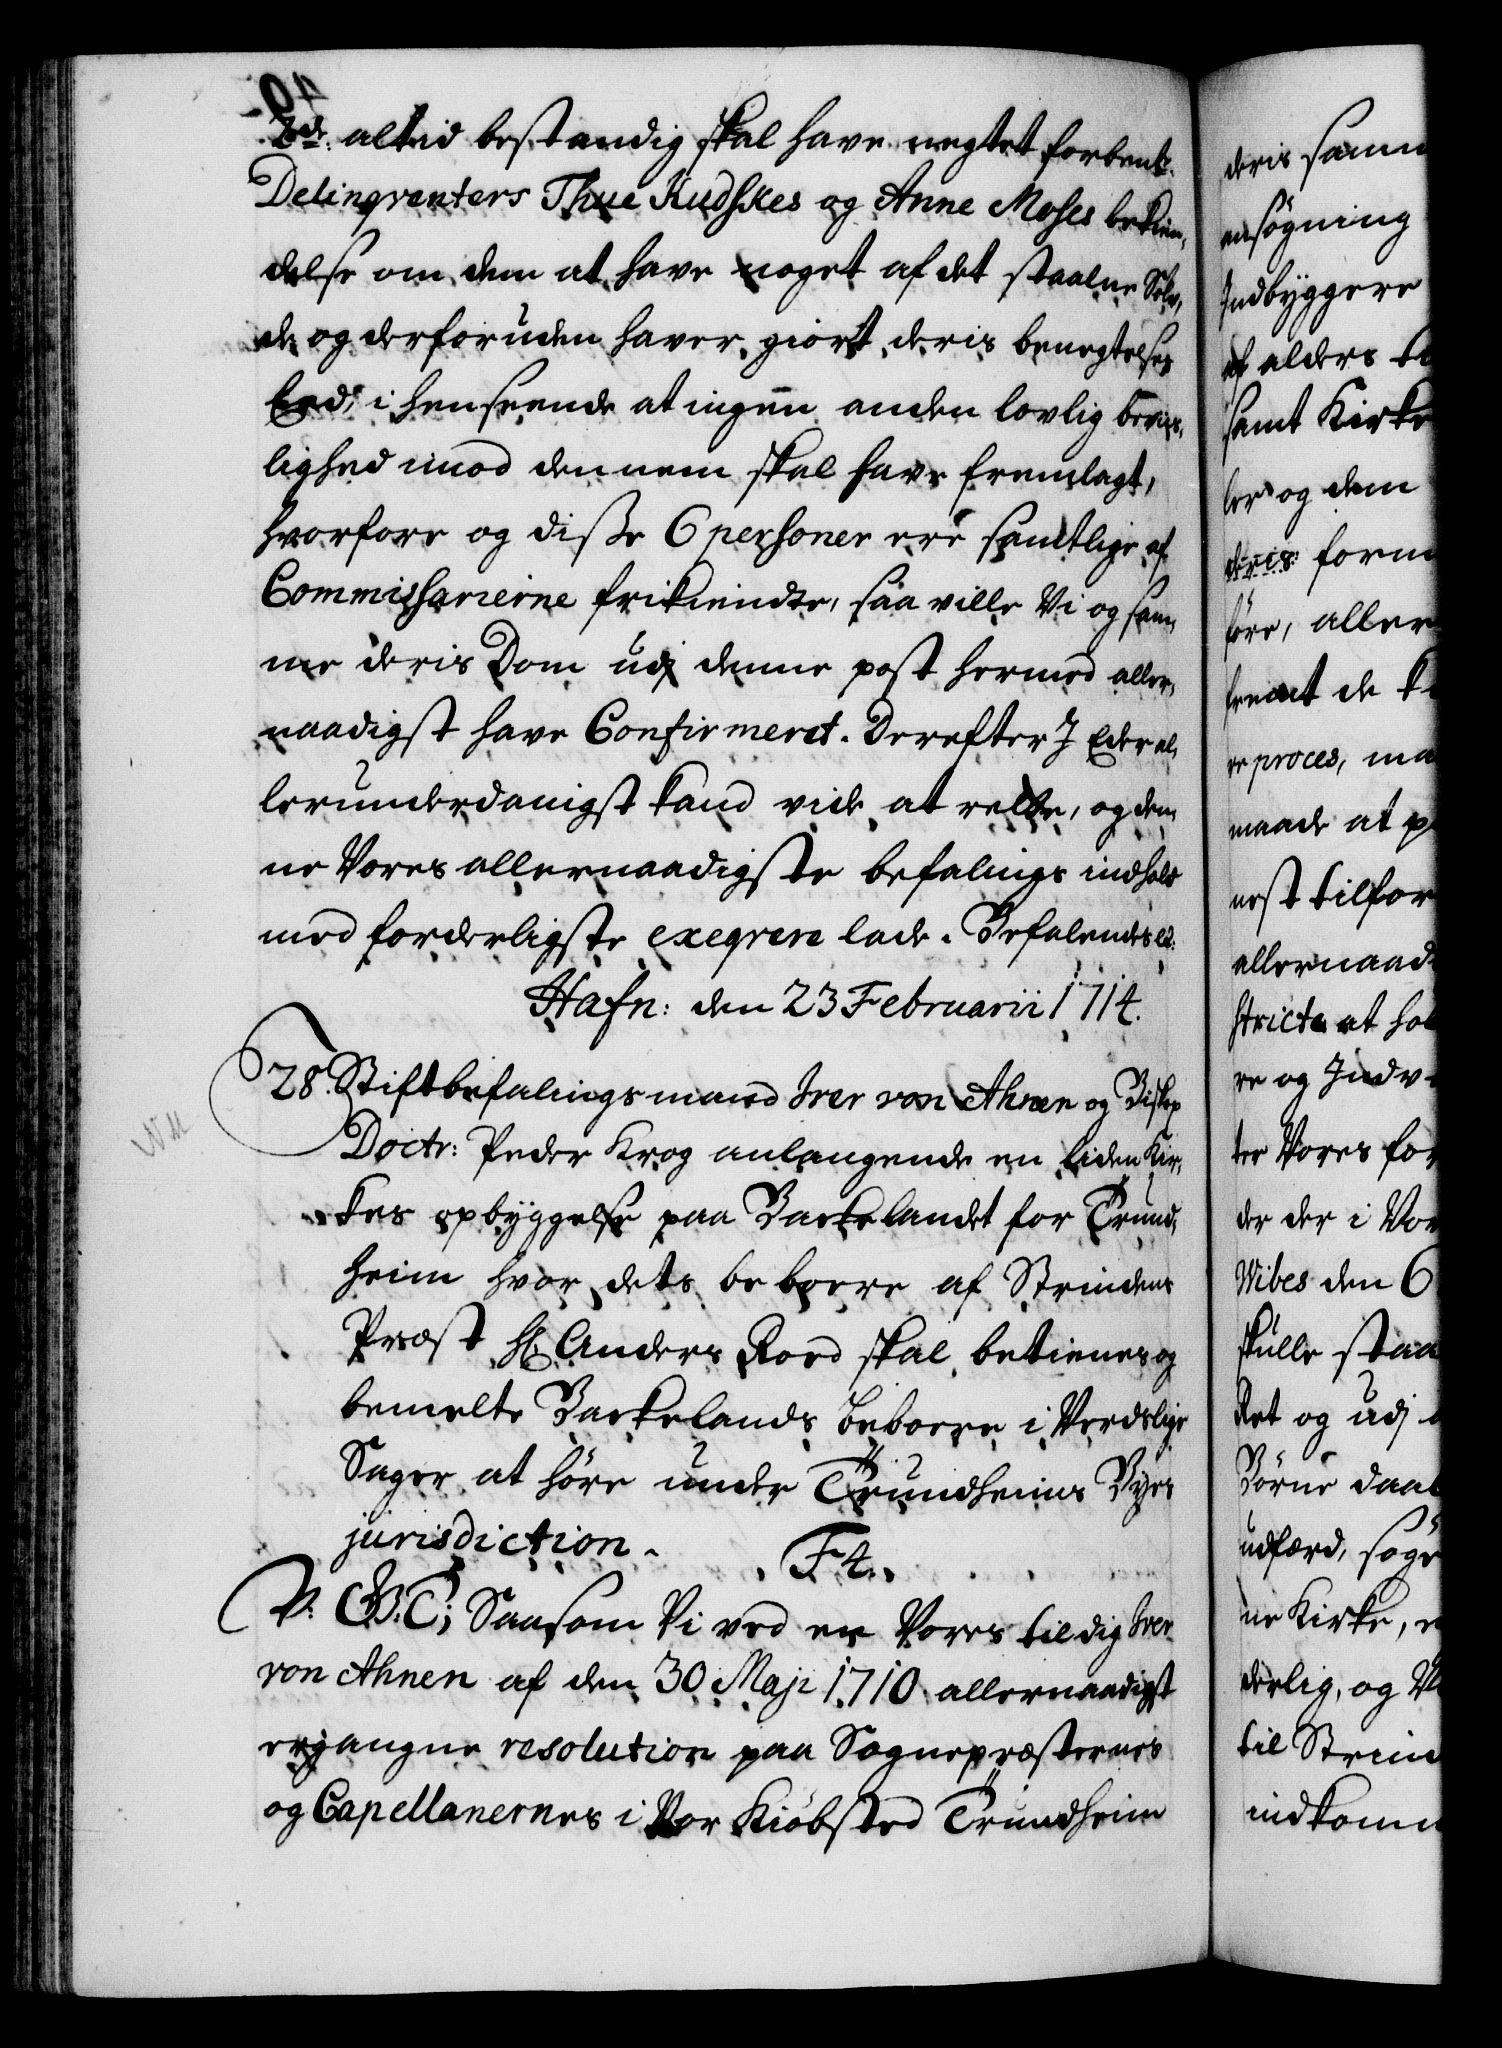 altid bestandig skal have negtet forbent.
Delinqventers Thue Kudskes og Anne Moses bekien,
delse om dem at have noget af det staalne Sølv,
de og derforuden haver giort deris benegtelses
Eed, i henseende at ingen anden lovlig beviis,
lighed imod dennem skal have fremlagt,
hvorfore og disse 6 personer ere samtlige af
Commissarierne frikiendte, saa ville Vi og sam,
me deris Dom udj denne post hermed aller,
naadigst have Confirmeret. Derefter I Eder al,
lerunderdanigst kand vide at rette, og den,
ne Vores allernaadigste befalings indhold
med forderligste exeqvere lade. Befalendes Ed:
Hafn: den 23 Februarii 1714.
28. Stiftbefalingsmand Iver von Ahnen og Biskop
Doctr: Peder Krog anlangende en liden Kir,
kes opbyggelse paa Backelandet for Trund,
heim hvor dets beboere af Strindens
Præst Hr. Anders Rord skal betienes og
bemelte Backelands beboere i Verdslige
Sager at høre under Trundheims Byes
jurisdiction.
F4.
V: G: T; Saasom Vi ved en Vores til dig Iver
von Ahnen af den 30 Maji 1710 allernaadigst
ergangne resolution paa Sognepræsternes
og Capellanernes i Vor Kiøbsted Trundheim
deris samm
ansøgning
Indbyggere
af alders ti
samt Kirke
ler og dem
deris: form
føre, aller
fremt de k
re proces, ma
maade at p
nest tilfor
allernaad
stricte at hol
re og Indv
ter Vores for
der der i Vor
Wibes den 6
skulle staa
Ret og udj
Børne daab
udfærd, søge
ne Kirke, e
derlig, og V
til Strind
indkomm